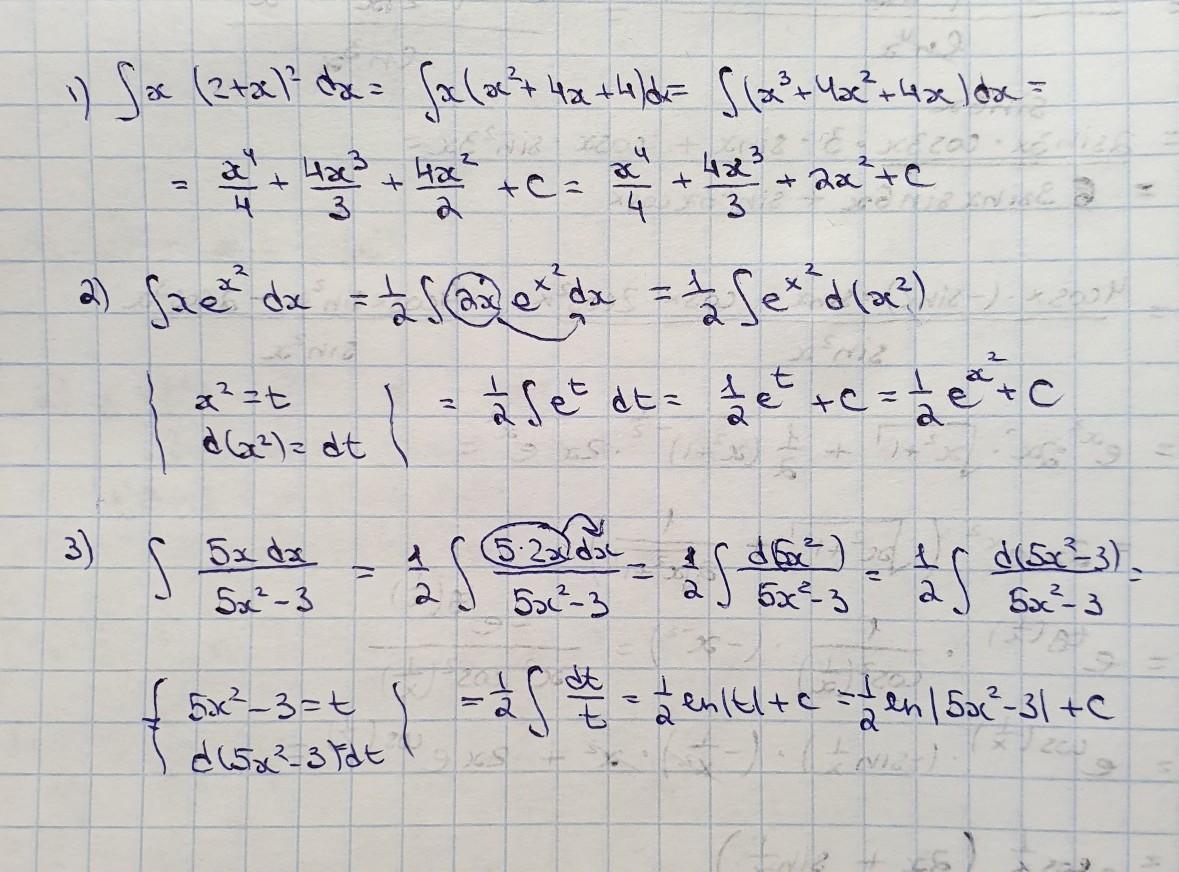 1) ∫x (2+x)² dx = ∫x(x²+4x+4)dx = ∫(x³+4x²+4x)dx =
= x⁴/4 + 4x³/3 + 4x²/2 + C = x⁴/4 + 4x³/3 + 2x² + C
2) ∫xe^(x²) dx = 1/2 ∫2x e^(x²) dx = 1/2 ∫e^(x²) d(x²)
{ x² = t { = 1/2 ∫e^t dt = 1/2 e^t + C = 1/2 e^(x²) + C
d(x²) = dt
3) ∫ 5x dx/(5x²-3) = 1/2 ∫ 5·2x dx/(5x²-3) = 1/2 ∫ d(5x²)/(5x²-3) = 1/2 ∫ d(5x²-3)/(5x²-3) =
{ 5x²-3 = t { = 1/2 ∫ dt/t = 1/2 ln|t| + C = 1/2 ln|5x²-3| + C
d(5x²-3) = dt